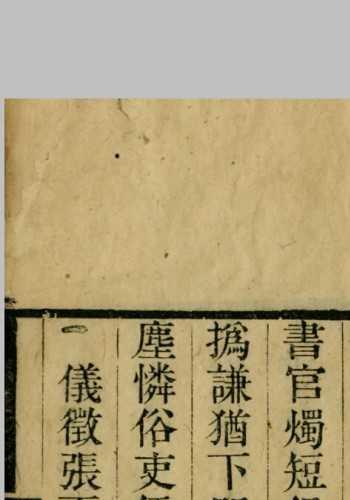 書官燭短
撝謙猶下
塵憐俗吏
儀徵張